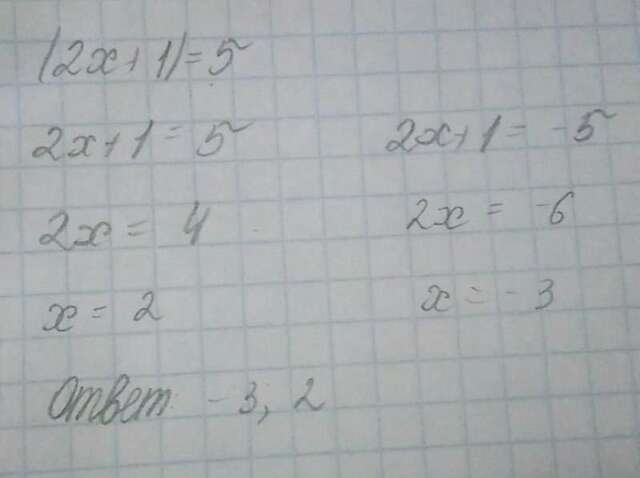 |2x+1|=5
2x+1=5 2x+1=-5
2x=4 2x=-6
x=2 x=-3
Ответ -3; 2